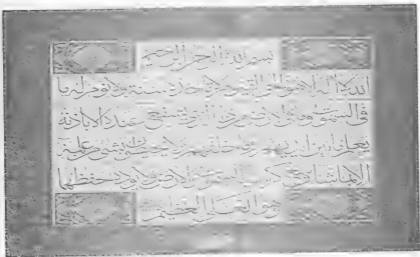 بسم الله الرحمن الرحيم
الله لا اله الا هو الحى القيوم لا تاخذه سنة ولا نوم له ما
فى السموات وما فى الارض من ذا الذى يشفع عنده الا باذنه
يعلم ما بين ايديهم وما خلفهم ولا يحيطون بشى من علمه
الا بما شاء وسع كرسيه السموات والارض ولا يؤده حفظهما
وهو العلى العظيم